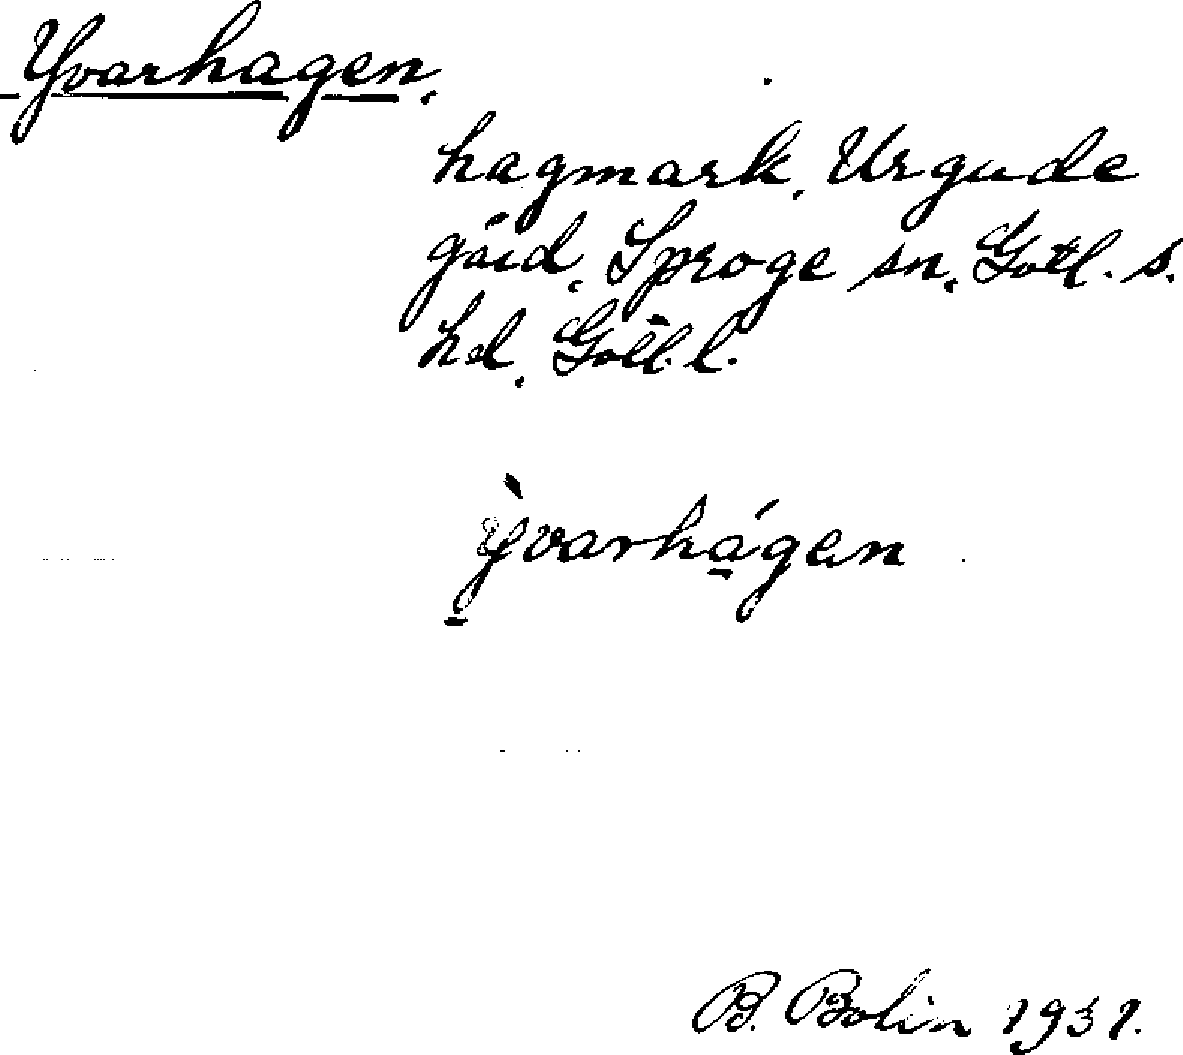 Yvarhagen.
hagmark, Urgude
gård, Sproge sn, Gotl. s.
hd, Gotl. l.
Ỳvarhágen
B. Bolin 1931.